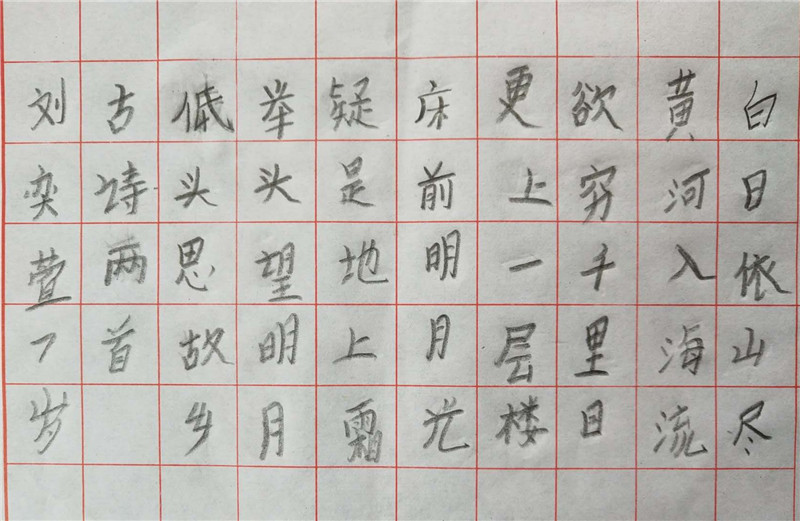 白日依山尽
黄河入海流
欲穷千里日
更上一层楼
床前明月光
疑是地上霜
举头望明月
低头思故乡
古诗两首
刘奕萱7岁